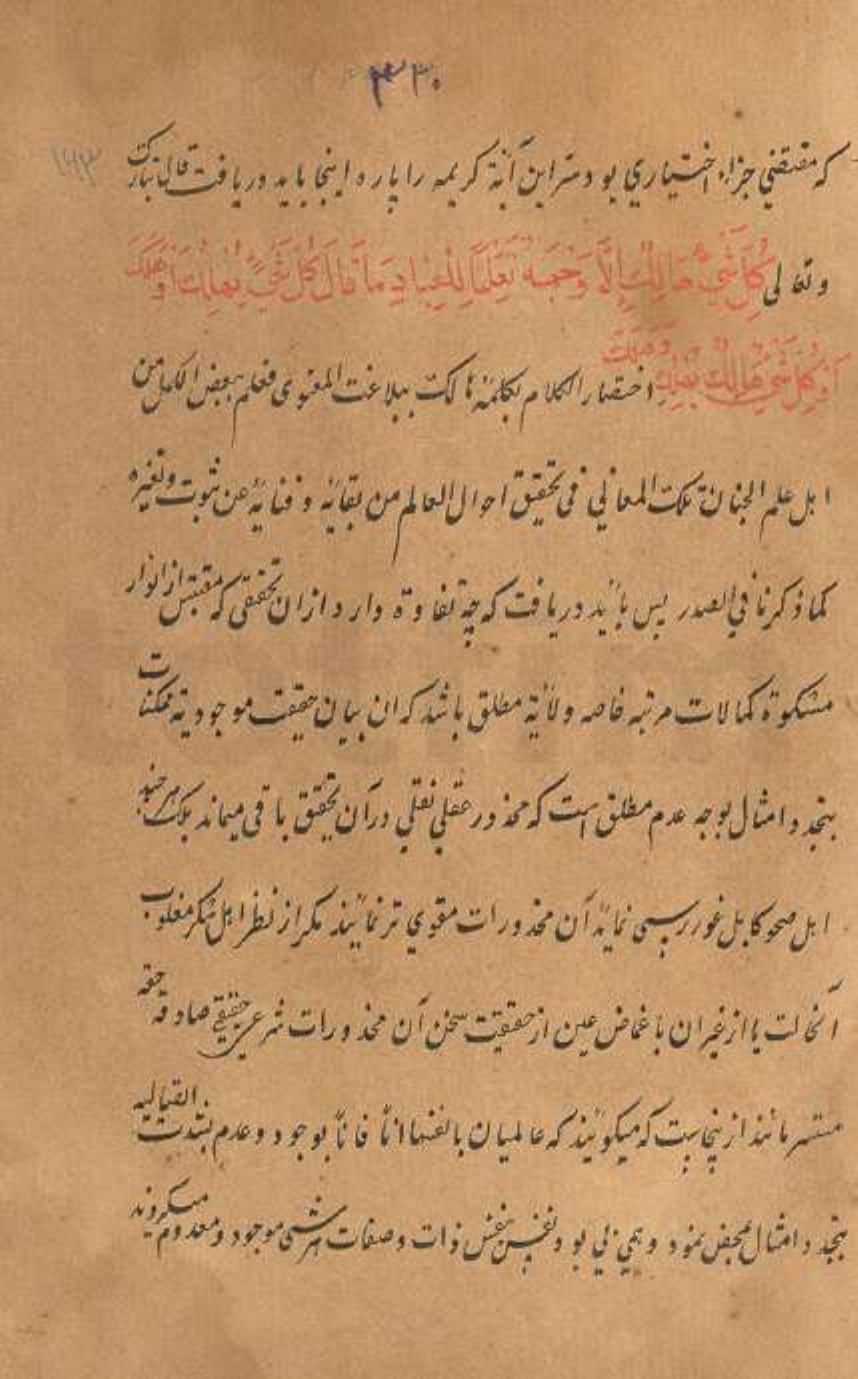 ۳۳۰
۱۶۳
که مقتضی جزاء اختیاري بود سّر این آیة کریمه را پاره اینجا باید دریافت قال تبارک
و تعالی كُلُّ شَيْءٍ هَالِكٌ إِلَّا وَجْهَهُ تَعْلِيمًا لِلْعِبَادِ مَا قَالَ كُلُّ شَيْءٍ يَهْلِكُ أَوْ هَلَكَ
أَوْ كُلُّ شَيْءٍ هَالِكٌ اختصار الکلام بکلمة هالک ببلاغت المعنوی فعلم بعض الکامل من
اهل علم الجنان تلک المعانی فی تحقیق احوال العالم من بقائه و فنائه عن ثبوت و تغیره
کما ذکرنا فی الصدر پس بائید دریافت که چه تفاوة دارد ازان تحققی که مقتبس از انوار
مشکوة کمالات مرتبه خاصه ولایة مطلق باشد که ان بیان حقیقت موجودیة ممکنات
بتجدد امثال بوجه عدم مطلق است که محذور عقلی نقلی در آن تحقیق باقی میماند بلک هر چند
اهل صحو کابل غور رسی نمایند آن محذورات مقوي تر نمائیند مکر از نظر اهل سکر مغلوب
آنحالت یا از غیران با غماض عین از حقیقت سخن آن محذورات شرعی حقیقی صادقه حقه
مستتر مانند از ینجاست که میکوئیند که عالمیان بانفسها اناً فاناً بوجود و عدم بتدت القیالیه
بتجدد امثال بمحض نمود و همی بی بود و نفس بنفس ذات و صفات هر شی موجود و معدوم میکروند